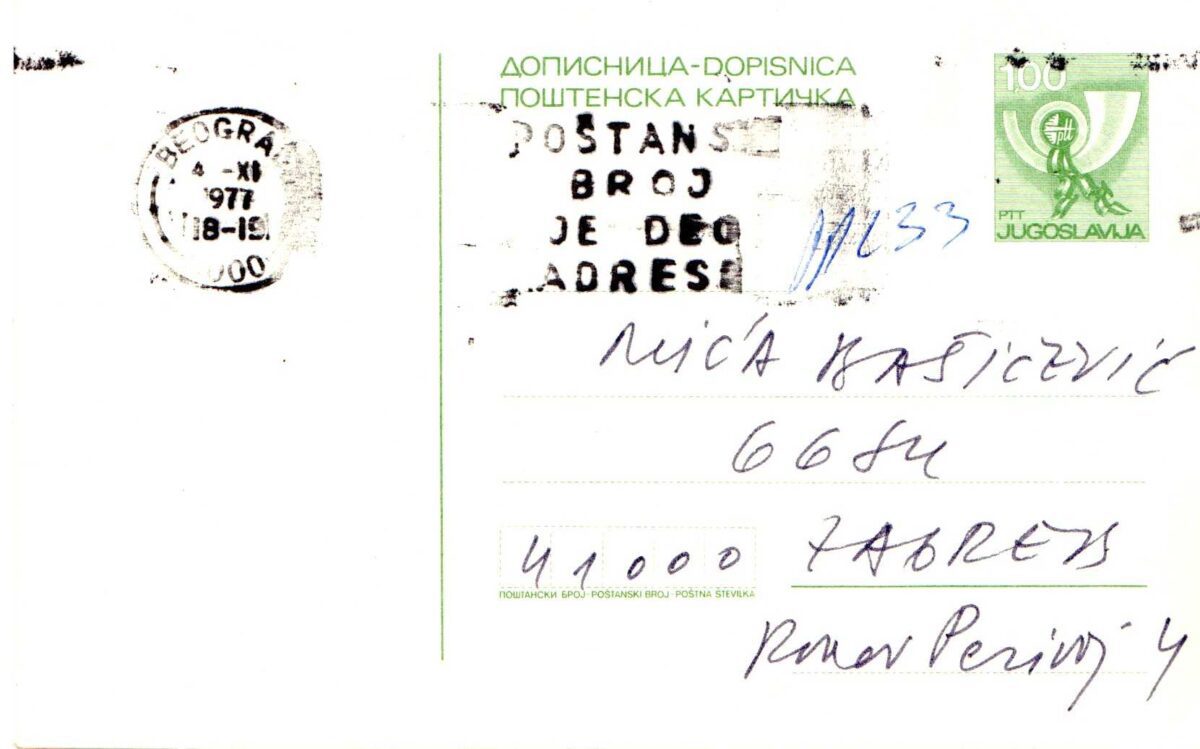 ДОПИСНИЦА-DOPISNICA
ПОШТЕНСКА КАРТИЧКА
100
ptt
PTT
JUGOSLAVIJA
BEOGRA
4 -XI
1977
18-19
000
POŠTANS
BROJ
JE DEO
ADRESE
33
MIĆA BAŠIČEVIĆ
66 84
41000 ZAGREB
ПОШТАНСКИ БРОЈ-POŠTANSKI BROJ-POŠTNA ŠTEVILKA
Rokov Perivoj 4